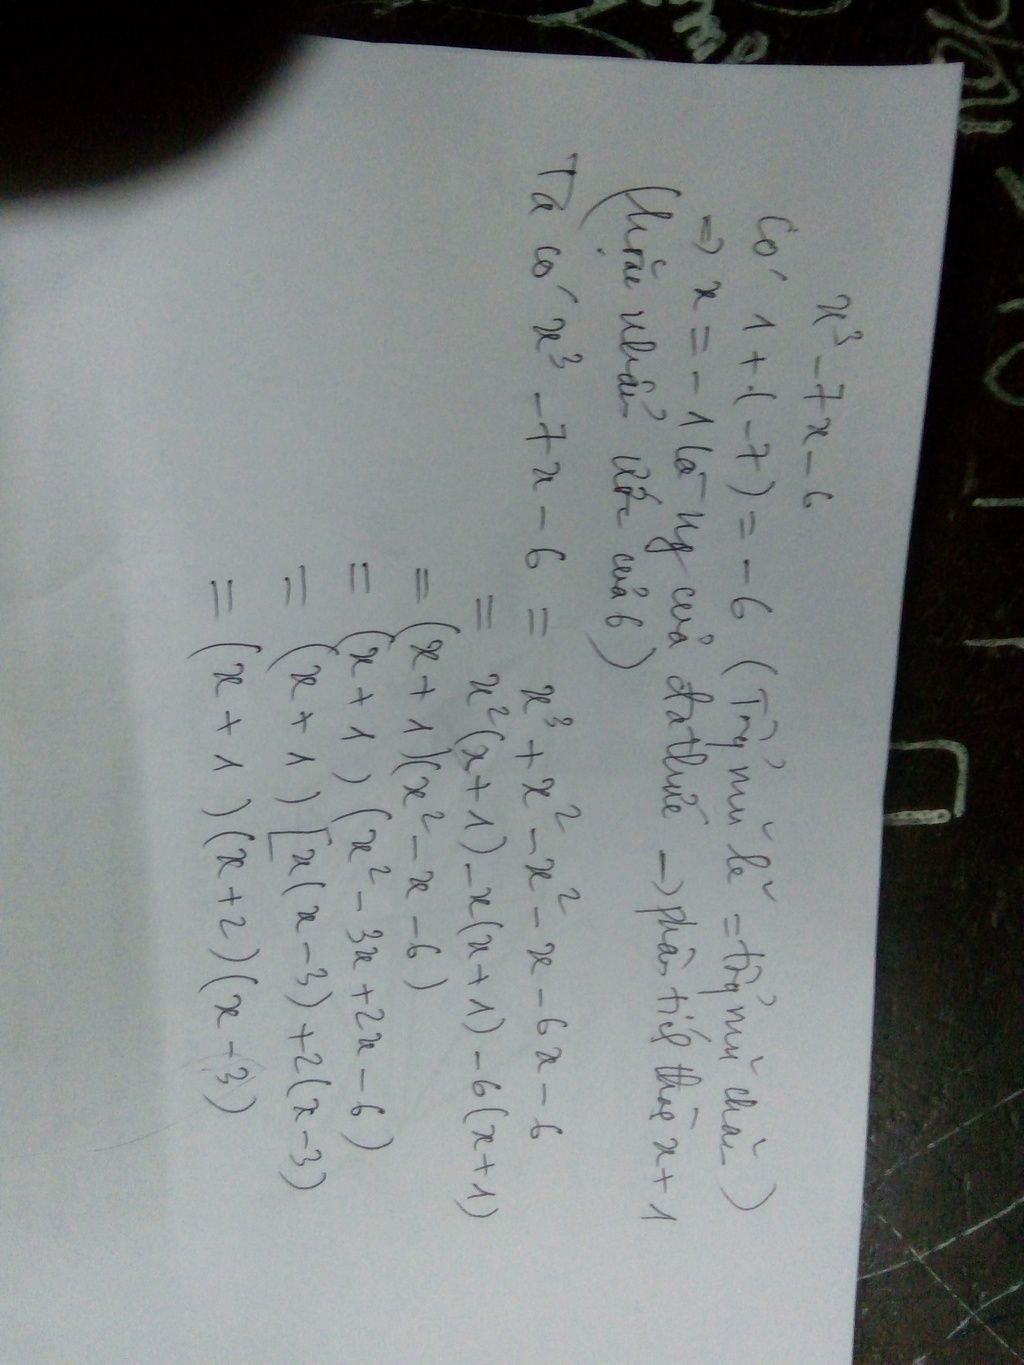 x³ - 7x - 6
Có 1 + (-7) = -6 (Tổng mũ lẻ = tổng mũ chẵn)
=> x = -1 là ng của đa thức -> phân tích theo x + 1
(Hoặc nhẩm ước của 6)
Ta có x³ - 7x - 6 = x³ + x² - x² - x - 6x - 6
= x²(x + 1) - x(x + 1) - 6(x + 1)
= (x + 1)(x² - x - 6)
= (x + 1)(x² - 3x + 2x - 6)
= (x + 1)[x(x - 3) + 2(x - 3)
= (x + 1)(x + 2)(x - 3)